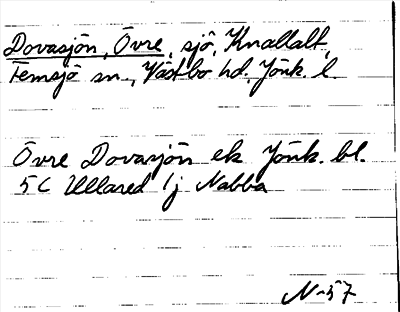 Dovasjön, Övre, sjö, Knallalt,
Femsjö sn., Västbo hd, Jönk. l.
Övre Dovasjön ek Jönk. bl.
5C Ullared 1j Nabba
N-57